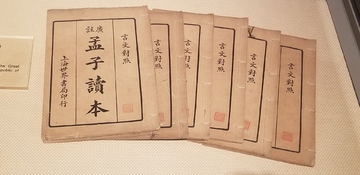 廣註
孟子讀本
言文對照
上海世界書局印行
言文對照
言文對照
言文對照
言文對照
言文對照